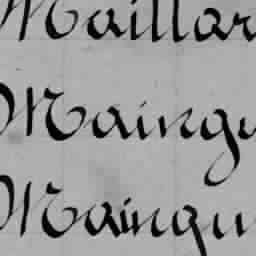 Maillar
Maingu
Maingu